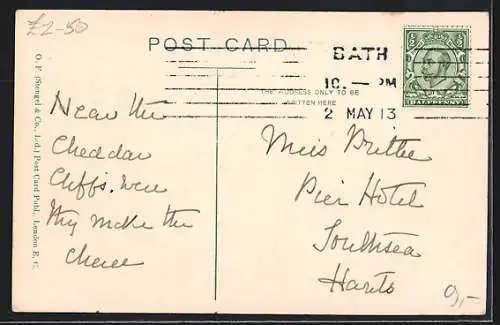 £2-50
POST CARD
BATH
10. — PM
2 MAY 13
THE ADDRESS ONLY TO BE
WRITTEN HERE
HALFPENNY
O. F. (Stengel & Co., Ld.) Post Card Publ., London E. C.
Near the
Cheddar
Cliffs. were
they make the
cheese
Miss
Pier Hotel
Southsea
Hants
9,-